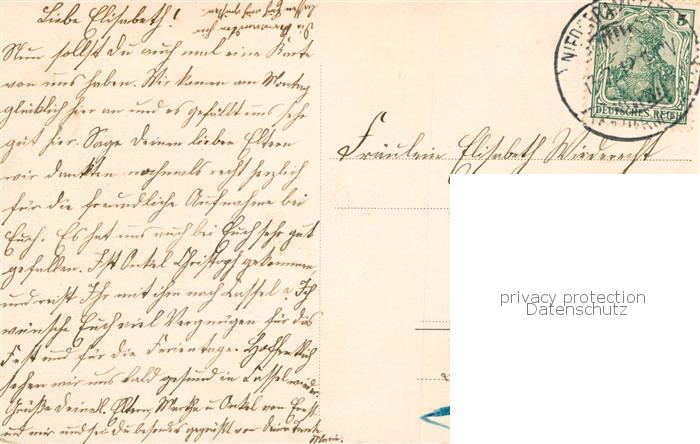 Liebe Elisabeth!
Nun sollst du auch mal eine Karte
von uns haben. Wir kamen am Montag
glücklich hier an und es gefällt uns sehr
gut hier. Sage deinen lieben Eltern
wir dankten nochmals recht herzlich
für die freundliche Aufnahme bei
Euch. Es hat uns auch bei Euch sehr gut
gefallen. Ist Onkel Christoph gekommen
und reist Ihr mit ihm nach Cassel? Ich
wünsche Euch viel Vergnügen für das
Fest und für die Ferientage. Hoffentlich
sehen wir uns bald gesund in Cassel wieder.
Grüße deine l. Eltern, Martha u Onkel von Ernst
und mir und sei du besonders gegrüßt von deiner Tante
Marie.
5
DEUTSCHES REICH
Fräulein Elisabeth Wiederrecht
privacy protection
Datenschutz